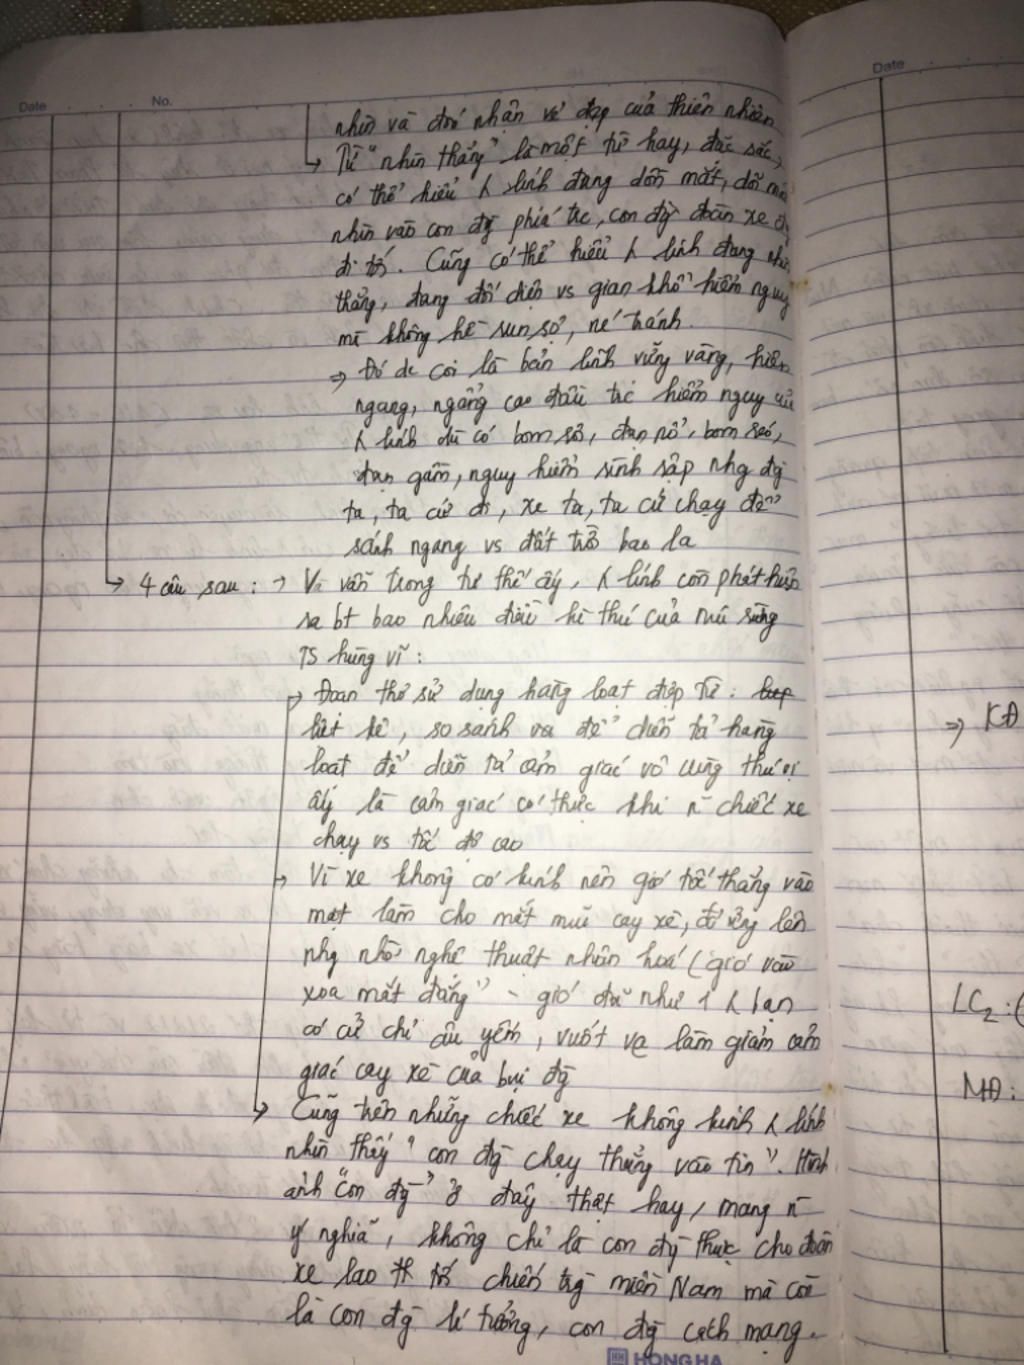 Date No. Date
nhìn và đón nhận vẻ đẹp của thiên nhiên
↳ Từ "nhìn thẳng" là một từ hay, đặc sắc,
có thể hiểu λ lính đang dồn mắt, dõi
nhìn vào con đg phía trc, con đg đoàn xe
đi tới. Cũng có thể hiểu λ lính đang nhìn
thẳng, đang đối diện vs gian khổ hiểm nguy
mà không hề run sợ, né tránh.
=> Đó dc coi là bản lĩnh vững vàng, hiên
ngang, ngẩng cao đầu trc hiểm nguy của
λ lính dù có bom sa, đạn nổ, bom réo,
đạn gầm, nguy hiểm rình rập nhg đg
ta, ta cứ đi, xe ta, ta cứ chạy để
sánh ngang vs đất trời bao la
→ 4 câu sau: → Và vẫn trong tư thế ấy, λ lính còn phát hiện
ra bt bao nhiêu điều kì thú của núi rừng
TS hùng vĩ:
→ Đoạn thơ sử dụng hàng loạt điệp từ,
liệt kê, so sánh và để diễn tả hàng
loạt để diễn tả cảm giác vô cùng thú vị
ấy là cảm giác có thực khi n~ chiếc xe
chạy vs tốc độ cao
→ Vì xe không có kính nên gió tốc thẳng vào
mặt làm cho mắt mũi cay xè, đỏ ửng lên
nhg nhờ nghệ thuật nhân hoá ("gió vào
xoa mắt đắng") - gió đã như 1 λ bạn
có cử chỉ âu yếm, vuốt ve làm giảm cảm
giác cay xè của bụi đg
↳ Cũng trên những chiếc xe không kính λ lính
nhìn thấy "con đg chạy thẳng vào tim". Hình
ảnh "con đg" ở đây thật hay, mang n~
ý nghĩa, không chỉ là con đg thực cho đoàn
xe lao tới chiến trg miền Nam mà còn
là con đg lí tưởng, con đg cách mạng.
=> KĐ
LC2: (
MĐ:
HONG HA